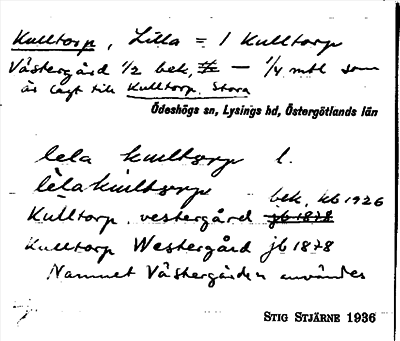 Kulltorp, Lilla = 1 Kulltorp
Västergård 1/2 bek, — 1/4 mtl som
är lagt till Kulltorp, Stora
Ödeshögs sn, Lysings hd, Östergötlands län
lela kulltorp l.
lèlakulltorp bek. kb 1926
Kulltorp, vestergård jb 1878
Kulltorp Westergård jb 1878
Namnet Västergården användes
STIG STJÄRNE 1936